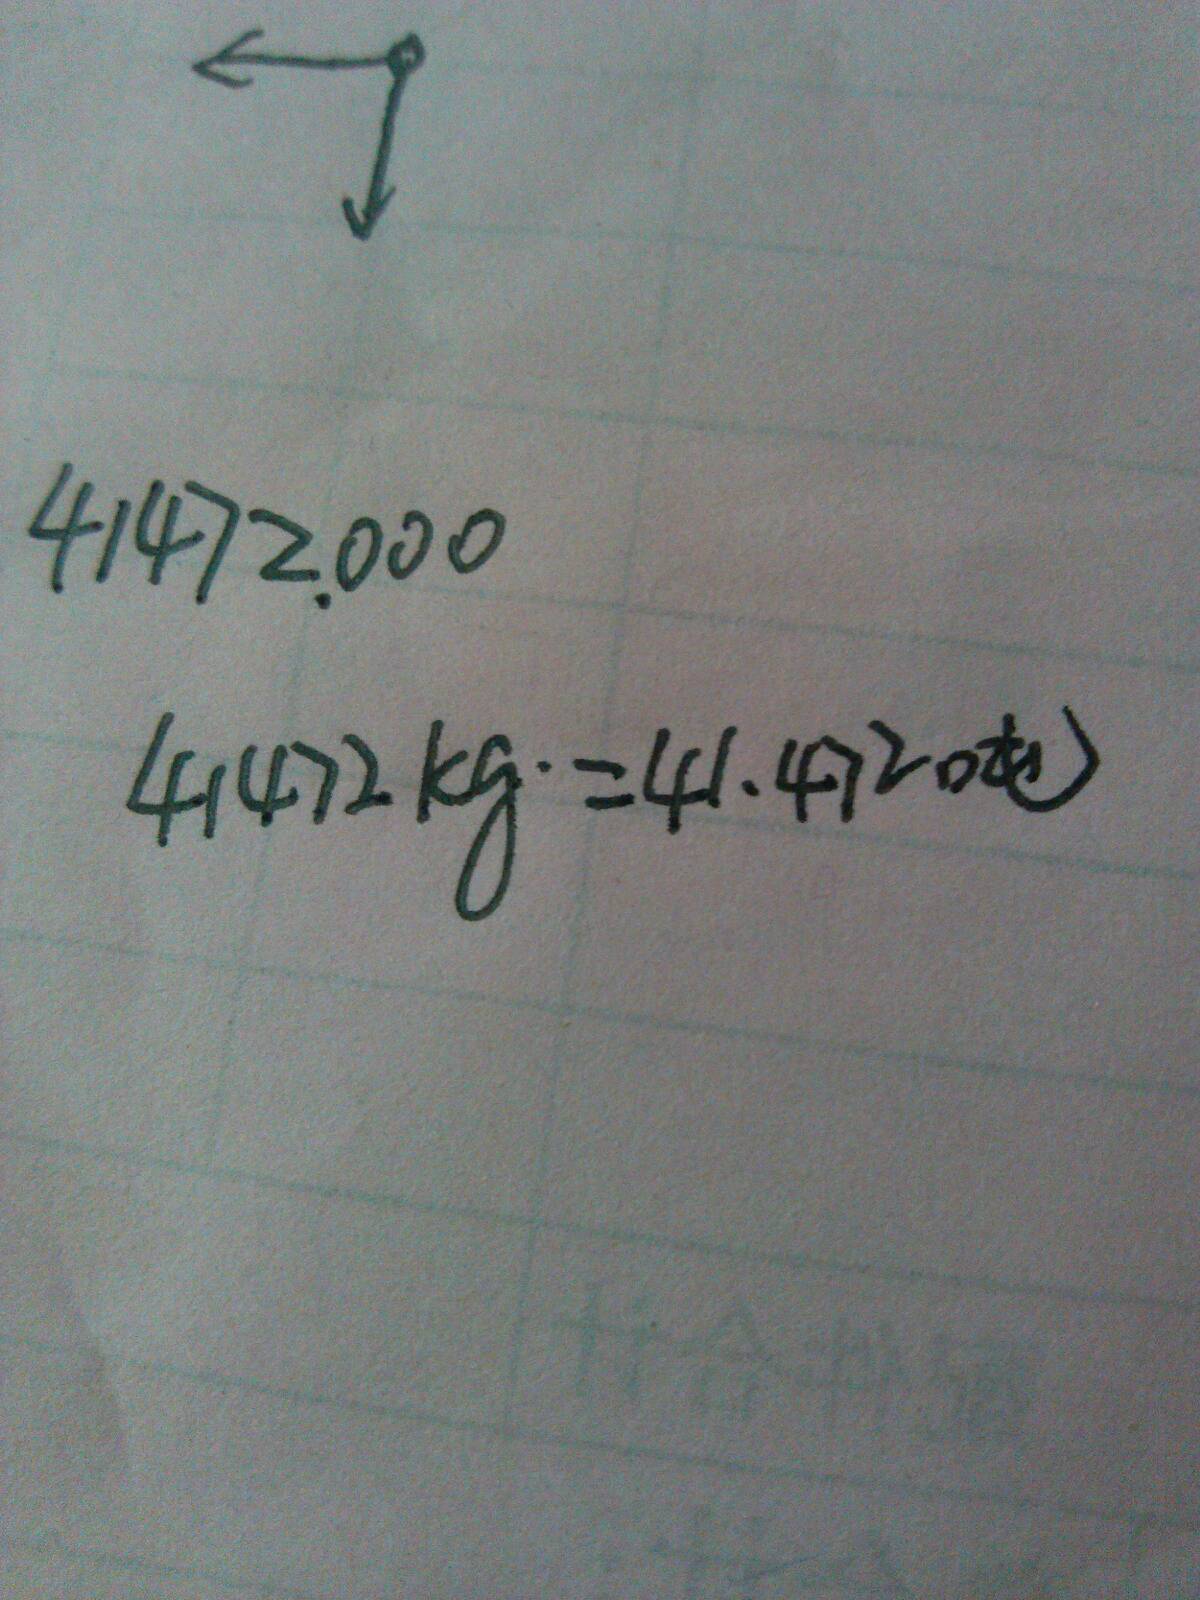 41472.000
41472kg.=41.472吨